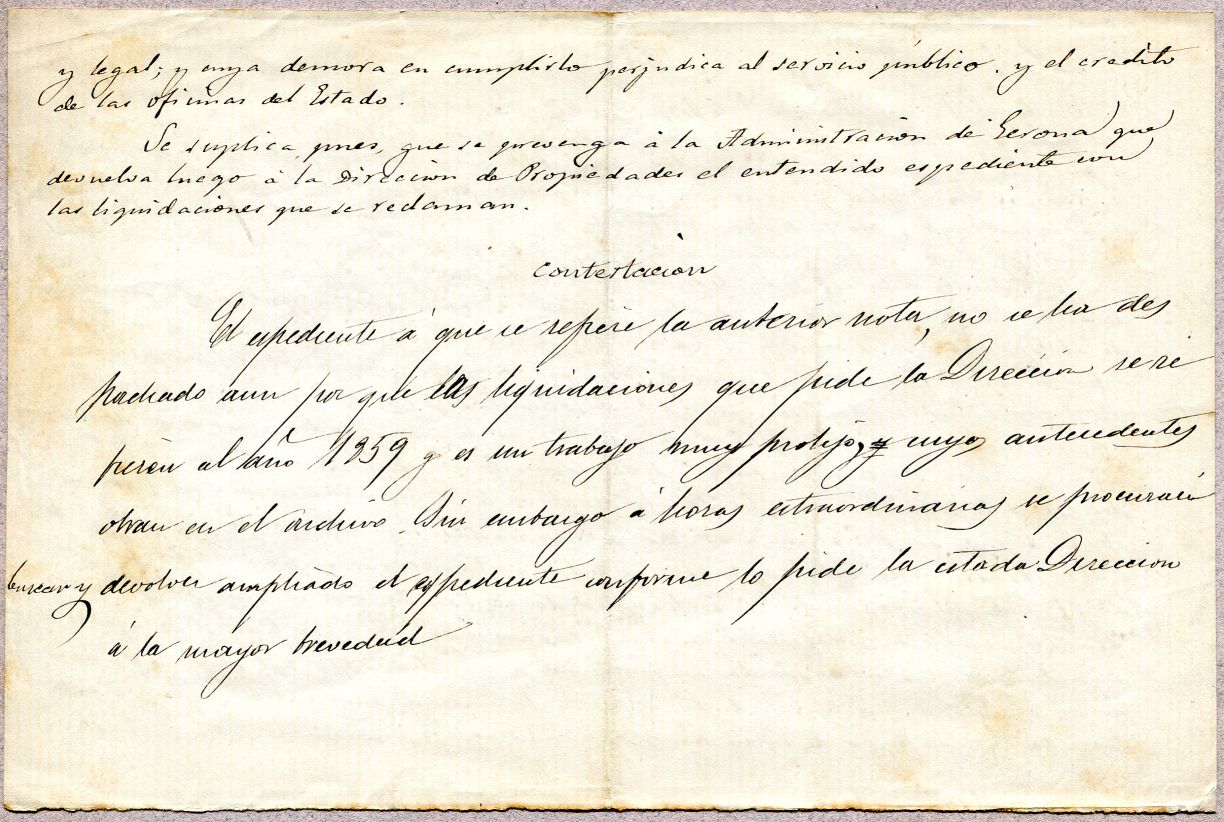 y legal; y cuya demora en cumplirlo perjudica al servicio público. y el credito
de las oficinas del Estado.
Se suplica, pues, que se prevenga á la Administración de Gerona que
devuelva luego á la Direccion de Propiedades el entendido espediente con
las liquidaciones que se reclaman.
Contestacion
El espediente á que se refiere la anterior nota, no se ha des
pachado aun por que las liquidaciones que pide la Dirección se re
fieren al año 1859 y es un trabajo muy prolijo, y cuyos antecedentes
obran en el archivo. Sin embargo á horas estraordinarias se procurará
buscar y devolver ampliado el espediente conforme lo pide la citada Direccion
á la mayor brevedad